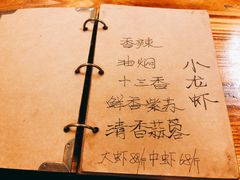 香辣
油焖
十三香
鲜香紫苏
清香蒜蓉
小龙虾
大虾88/斤 中虾68/斤